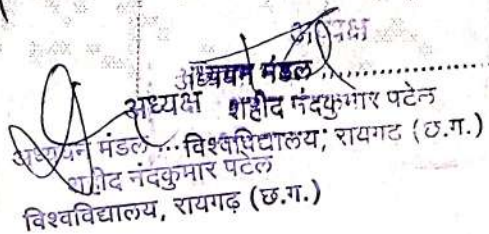 अध्यक्ष
अध्ययन मंडल ..................
अध्यक्ष शहीद नंदकुमार पटेल
अध्ययन मंडल ... विश्वविद्यालय, रायगढ़ (छ.ग.)
शहीद नंदकुमार पटेल
विश्वविद्यालय, रायगढ़ (छ.ग.)